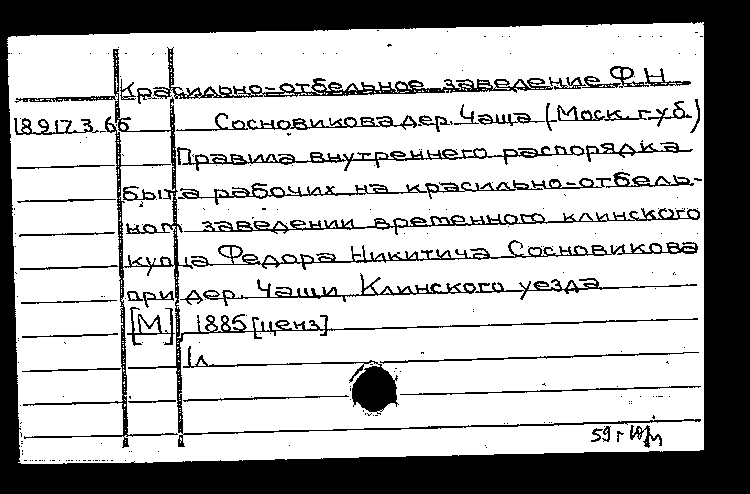 Красильно-отбельное заведение Ф.Н
18.917.3.65 Сосновикова дер. Чаща (Моск. губ.)
Правила внутреннего распорядка
быта рабочих на красильно-отбель-
ном заведении временного клинского
купца Федора Никитича Сосновикова
при дер. Чащи, Клинского уезда
[М.], 1885 [ценз]
1л.
59г